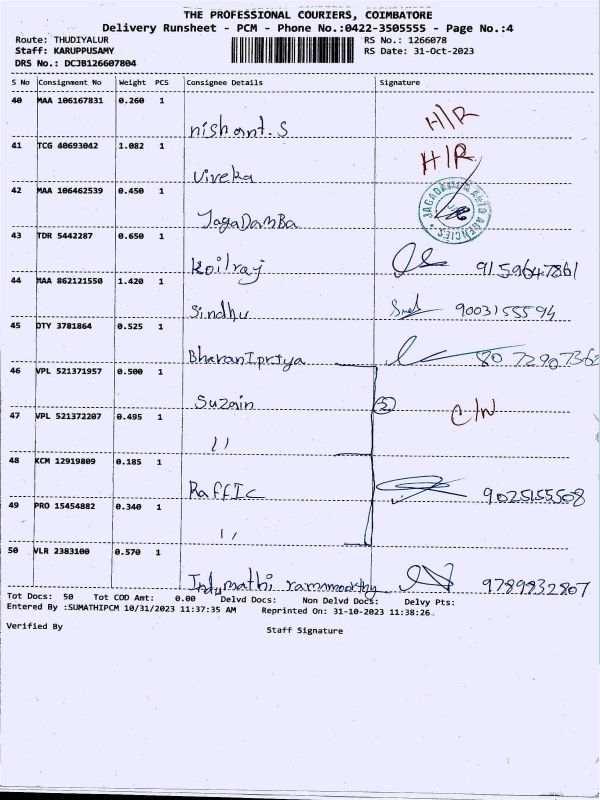 THE PROFESSIONAL COURIERS, COIMBATORE
Delivery Runsheet - PCM - Phone No.:0422-3505555 - Page No.:4
Route: THUDIYALUR RS No.: 1266078
Staff: KARUPPUSAMY RS Date: 31-Oct-2023
DRS No.: DCJB126607804
S No Consignment No Weight PCS Consignee Details Signature
40 MAA 106167831 0.260 1
nishant.S H/R
41 TCG 40693042 1.082 1
Viveka H/R
42 MAA 106462539 0.450 1
JagaDamBa JAGADAMBA AUTO AGENCIES
43 TDR 5442287 0.650 1
Koilraj 9159647861
44 MAA 862121550 1.420 1
Sindhu 9003155594
45 DTY 3781864 0.525 1
BharanIpriya 8072907362
46 VPL 521371957 0.500 1
Suzain 2 C/N
47 VPL 521372207 0.495 1
11
48 KCM 12919809 0.185 1
RaffIC 9025155508
49 PRO 15454882 0.340 1
11
50 VLR 2383100 0.570 1
Indumathi ramamoorthy 9789832807
Tot Docs: 50 Tot COD Amt: 0.00 Delvd Docs: Non Delvd Docs: Delvy Pts:
Entered By :SUMATHIPCM 10/31/2023 11:37:35 AM Reprinted On: 31-10-2023 11:38:26
Verified By Staff Signature